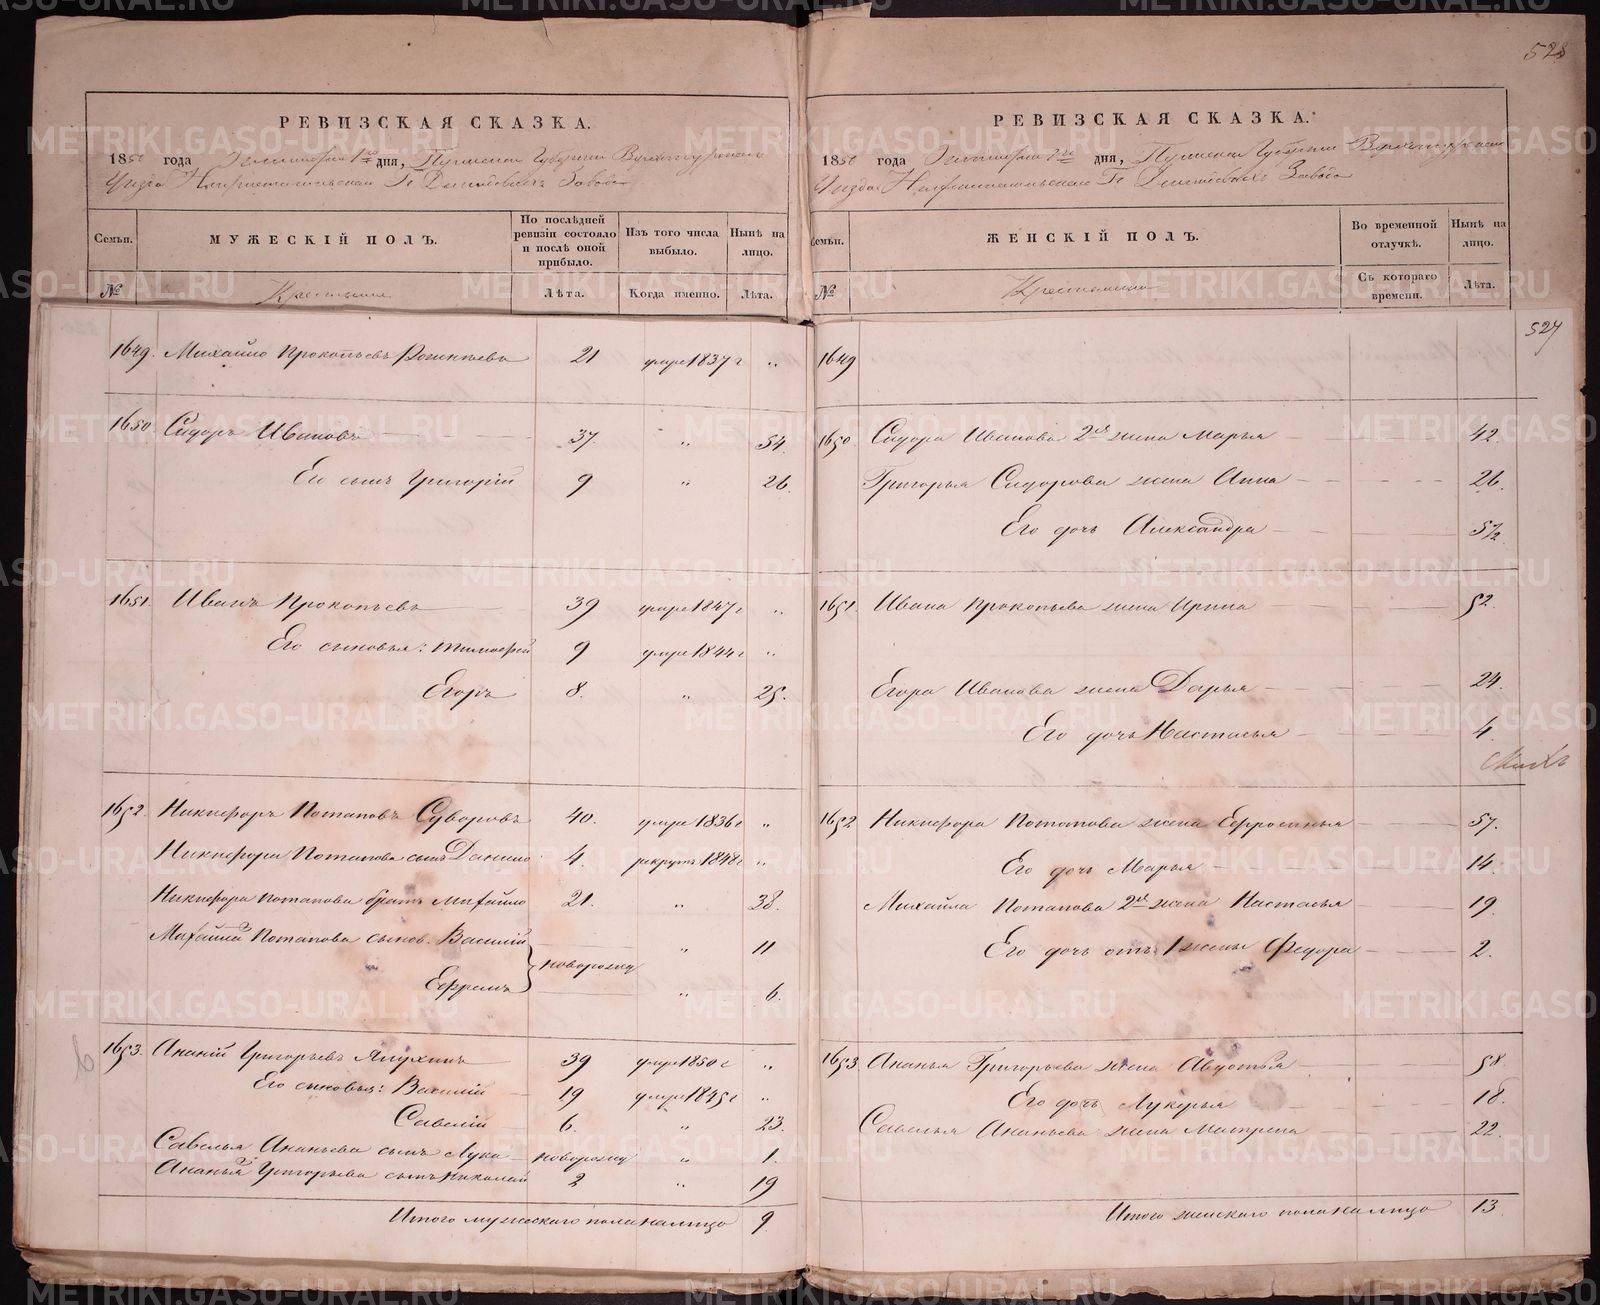 528
РЕВИЗСКАЯ СКАЗКА.
1850 года Сентября 1го дня, Пермской Губернии Верхотурскаго
Уезда Г. Демидовыхъ Завода
Семьи. МУЖЕСКІЙ ПОЛЪ. По послѣдней ревизіи состояло и послѣ оной прибыло. Изъ того числа выбыло. Нынѣ на лицо.
№ Крестьяне Лѣта. Когда именно. Лѣта.
1649. Михайло Прокопьевъ 21 умре 1837 г „
1650. Сидоръ Ивановъ 37. „ 54.
Его сынъ Григорій 9 „ 26.
1651. Иванъ Прокопьевъ 39 умре 1847 г „
Его сыновья: Тимофей 9 умре 1844 г „
Егоръ 8. „ 25.
1652. Никифоръ Потаповъ Суворовъ 40. умре 1836 г „
Никифора Потапова сынъ Данило 4. рекрутъ 1848 г „
Никифора Потапова братъ Михайло 21. „ 38.
Михайлы Потапова сынов. Василій „ 11
новорожд
Ефремъ „ 6.
1653. Ананій Григорьевъ Япухинъ 39 умре 1850 г „
Его сыновья: Василій 19 умре 1845 г „
Савелій 6. „ 23.
Савелья Ананьева сынъ Лука новорожд „ 1.
Ананья Григорьева сынъ Николай 2 „ 19
Итого мужескаго пола на лицо 9
РЕВИЗСКАЯ СКАЗКА.
1850 года Сентября 1го дня, Пермской Губернии Верхотурскаго
Уезда Г. Демидовыхъ Завода
Семьи. ЖЕНСКІЙ ПОЛЪ. Во временной отлучкѣ. Нынѣ на лицо.
№ Крестьянки Съ котораго времени. Лѣта.
527
1649
1650 Сидора Иванова 2я жена Марья 42.
Григорья Сидорова жена Анна 26.
Его дочь Александра 5½
1651. Ивана Прокопьева жена Ирина 52.
Егора Иванова жена Дарья 24.
Его дочь Настасья 4
1652 Никифора Потапова жена Ефросинья 57.
Его дочь Марья 14.
Михайла Потапова 2я жена Настасья 19.
Его дочь отъ 1 жены Федора 2.
1653 Ананья Григорьева жена Авдотья 58.
Его дочь Лукерья 18.
Савелья Ананьева жена Матрена 22.
Итого женскаго пола на лицо 13.
METRIKI.GASO-URAL.RU